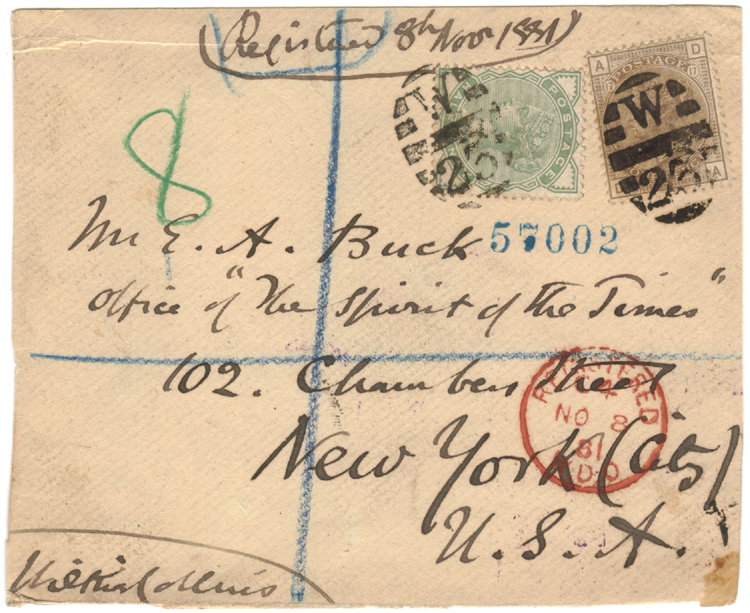 (Registered 8th Nov 1881)
POSTAGE
W
25
A D
POSTAGE
W
25
A
8
57002
Mr E. A. Buck
office of "The Spirit of the Times"
102. Chambers Street
New York (City)
U.S.A.
REGISTERED
NO 8
81
Wilkie Collins